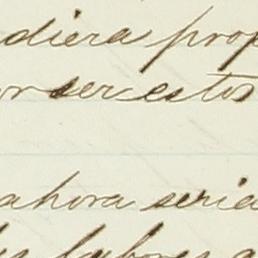 diera prop
or ser estos
ahora seria
labores a